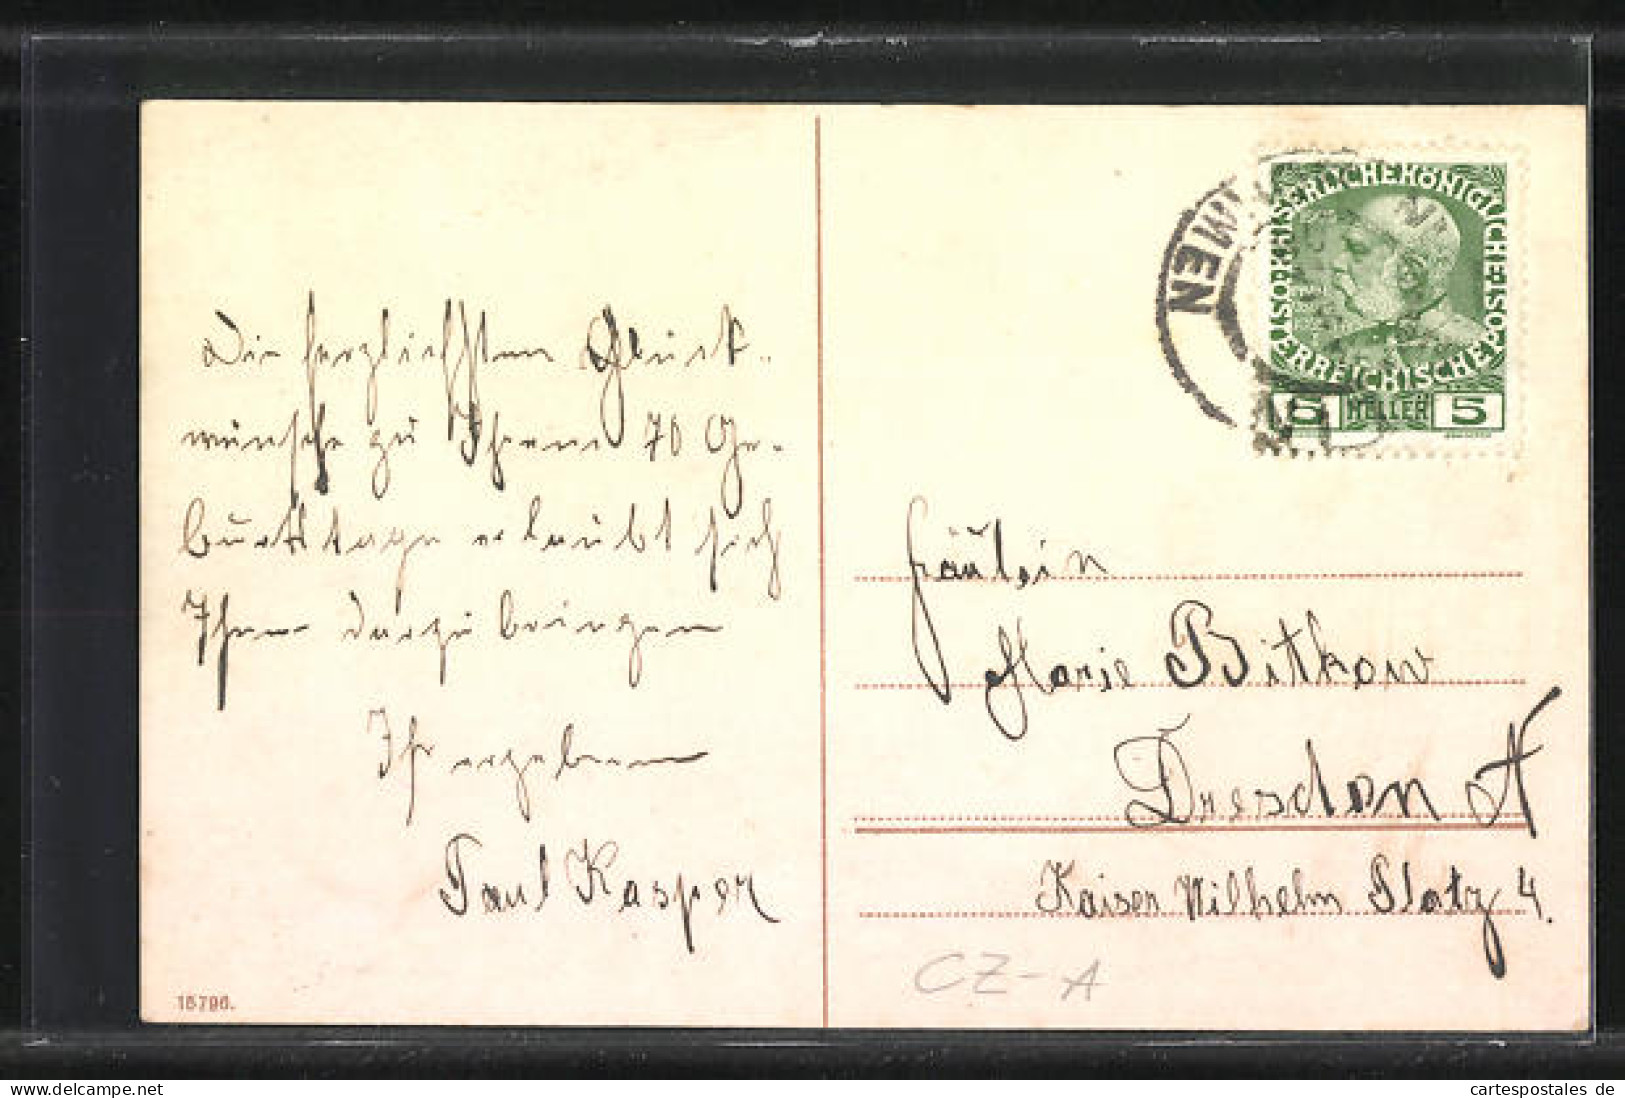 Die herzlichsten Glück-
wünsche zu Ihrem 70 Ge-
burtstage erlaubt sich
Ihnen darzubringen
Ihr ergebener
Paul Kasper
15796.
NEMEN
KAISERLICHEKÖNIGLICHE
ÖSTERREICHISCHEPOST
5 HELLER 5
Fräulein
Marie Bitkow
Dresden A
Kaiser Wilhelm Platz 4.
CZ-A
www.cartespostales.com
cartespostales de